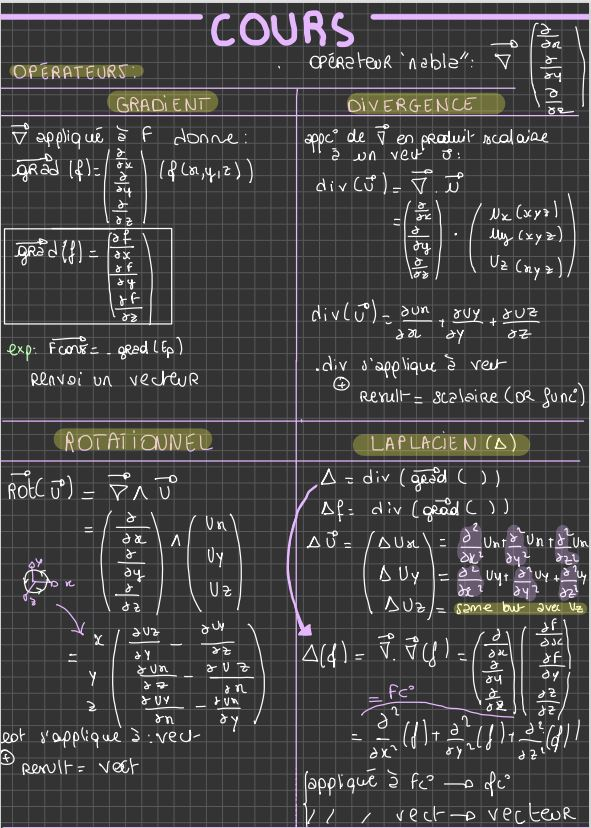 COURS
OPÉRATEURS:
OPÉRATEUR "nabla": ∇⃗ (∂/∂x ∂/∂y ∂/∂z)
GRADIENT
∇⃗ appliqué à F donne:
grad⃗ (f) = (∂/∂x ∂/∂y ∂/∂z) (f(x,y,z))
grad⃗ (f) = (∂f/∂x ∂f/∂y ∂f/∂z)
exp: F⃗cons = - grad⃗(Ep)
Renvoi un vecteur
DIVERGENCE
appc° de ∇⃗ en produit scalaire
à un vect U⃗:
div(U⃗) = ∇⃗ . U⃗
= (∂/∂x ∂/∂y ∂/∂z) . (Ux (xyz) Uy (xyz) Uz (xyz))
div(U⃗) = ∂Ux/∂x + ∂Uy/∂y + ∂Uz/∂z
. div s'applique à vect
⊕ Result = scalaire (OR func°)
ROTATIONNEL
Rot⃗(U⃗) = ∇⃗ ∧ U⃗
= (∂/∂x ∂/∂y ∂/∂z) ∧ (Ux Uy Uz)
y
x
z
= x y z (∂Uz/∂y - ∂Uy/∂z ∂Ux/∂z - ∂Uz/∂x ∂Uy/∂x - ∂Ux/∂y)
rot s'applique à : vect
⊕ Result = vect
LAPLACIEN (Δ)
Δ = div (grad⃗ ( ))
Δf = div (grad⃗ ( ))
ΔU⃗ = (ΔUx = ∂²/∂x² Ux + ∂²/∂y² Ux + ∂²/∂z² Ux
ΔUy = ∂²/∂x² Uy + ∂²/∂y² Uy + ∂²/∂z² Uy
ΔUz) = same but avec Uz
Δ(f) = ∇⃗ . ∇⃗(f) = (∂/∂x ∂/∂y ∂/∂z) (∂f/∂x ∂f/∂y ∂z/∂z)
= Fc°
= ∂²/∂x² (f) + ∂²/∂y² (f) + ∂²/∂z² (f)
appliqué à Fc° → fc°
/ / / vect → vecteur